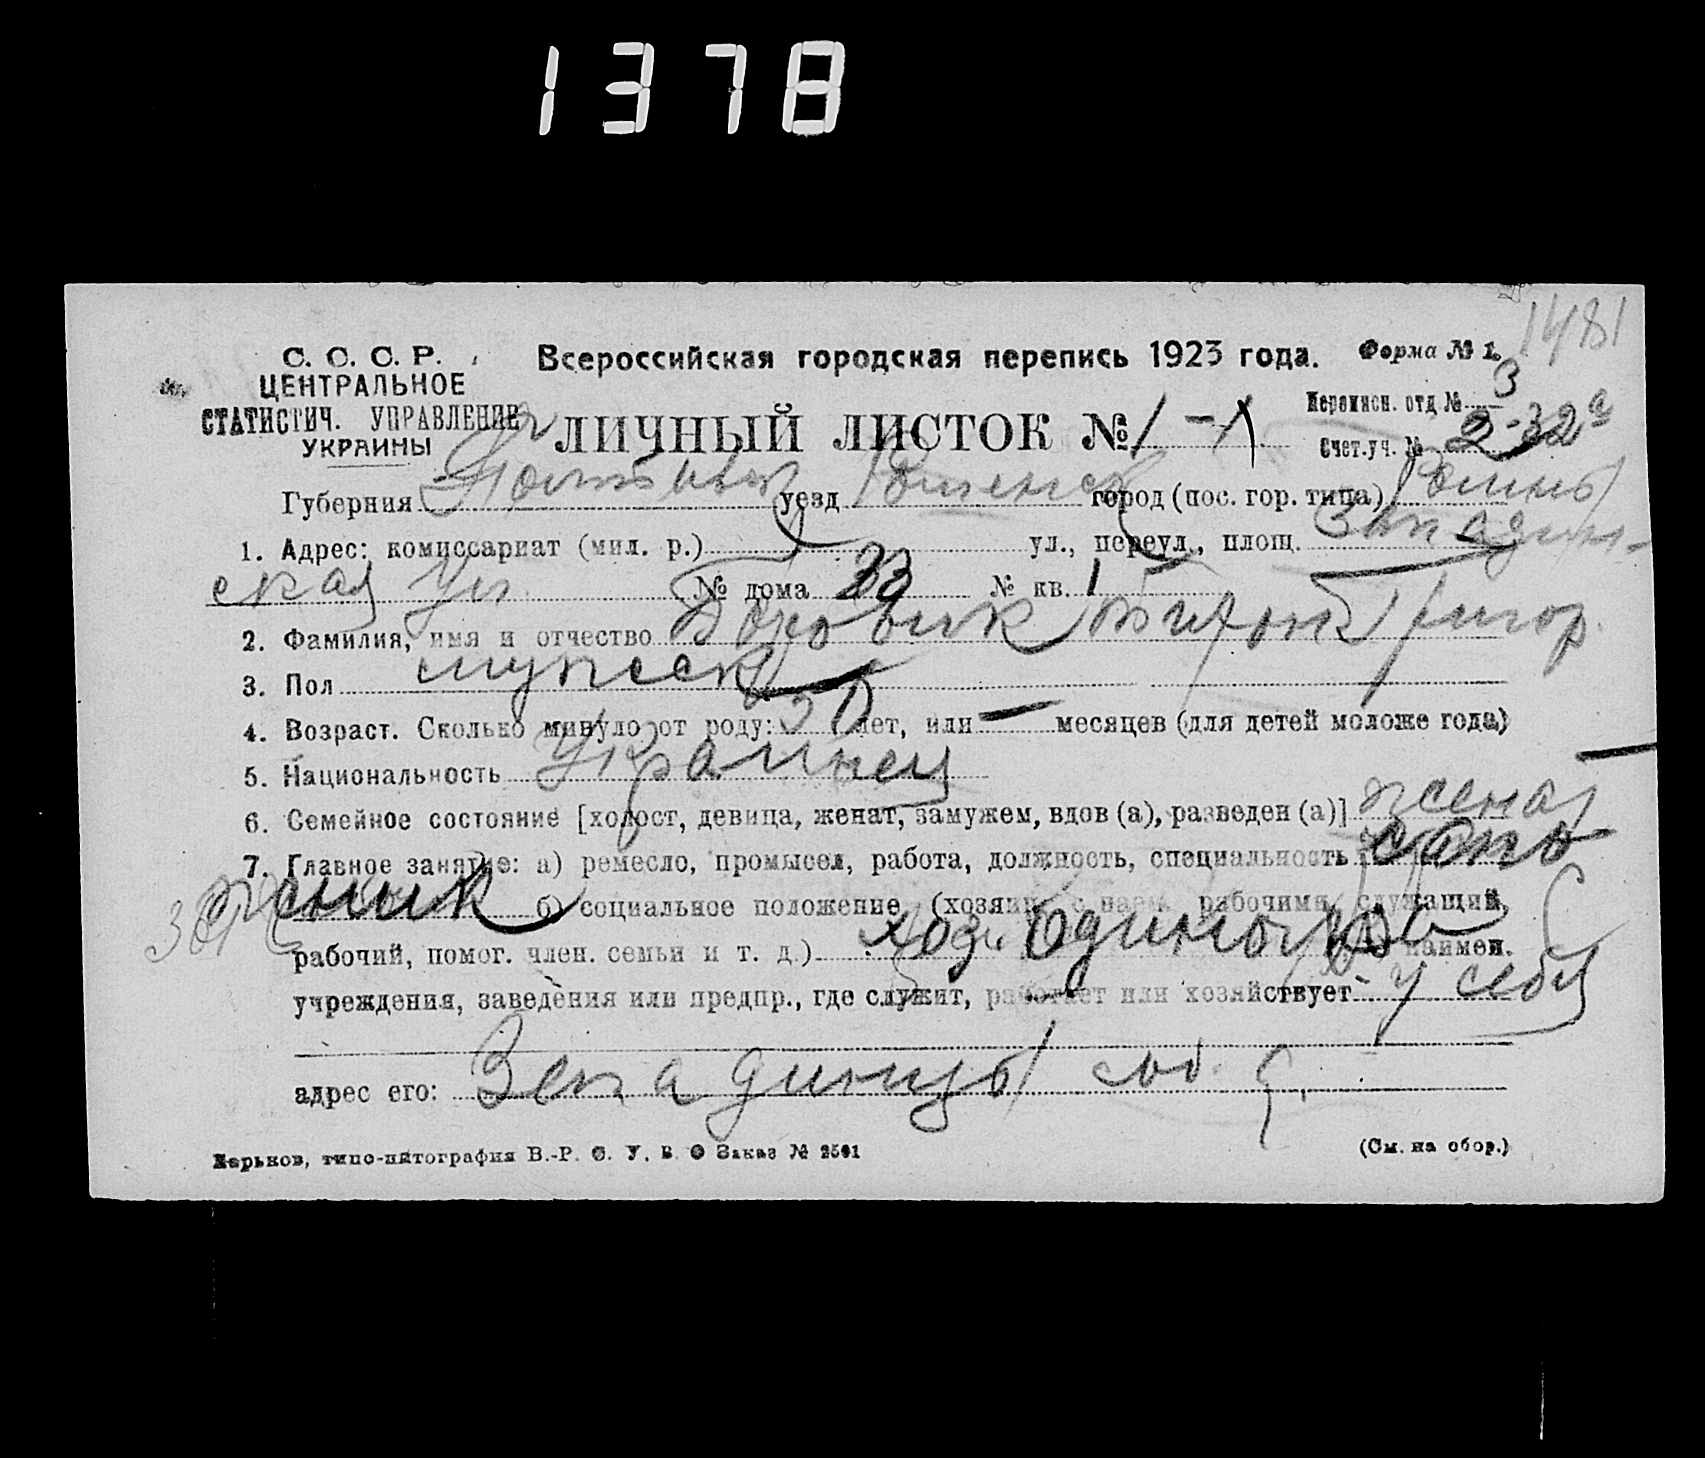 1378
1481
С. С. С. Р.
ЦЕНТРАЛЬНОЕ
СТАТИСТИЧ. УПРАВЛЕНИЕ
УКРАИНЫ
Всероссийская городская перепись 1923 года.
Форма № 1.
ЛИЧНЫЙ ЛИСТОК № 1 - 1
Переписн. отд № 3
Счет.уч. № 2-32а
Губерния уезд город (пос. гор. типа)
1. Адрес: комиссариат (мил. р.) ул., переул., площ.
ская ул № дома 33 № кв. 1
2. Фамилия, имя и отчество Боровик Тихон Григор.
3. Пол мужск
4. Возраст. Сколько минуло от роду: 30 лет, или — месяцев (для детей моложе года)
5. Национальность Украинец
6. Семейное состояние [холост, девица, женат, замужем, вдов (а), разведен (а)] женат
7. Главное занятие: а) ремесло, промысел, работа, должность, специальность сапо
жник б) социальное положение (хозяин с наем. рабочими, служащий,
рабочий, помог. член. семьи и т. д.) хоз. одиночка наимен.
учреждения, заведения или предпр., где служит, работает или хозяйствует у себя
адрес его:
Харьков, типо-литография В.-Р. С. У. В. О Заказ № 2501
(См. на обор.)